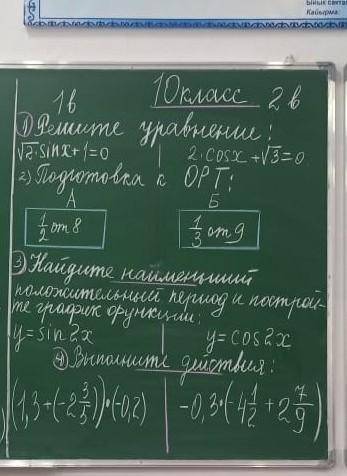 Кайырма:
1в 10класс 2в
1) Решите уравнение:
√2·sinx+1=0 | 2·cosx+√3=0
2) Подготовка к ОРТ:
А Б
1/2 от 8 1/3 от 9
3) Найдите наименьший
положительный период и построй-
те график функции:
y=sin2x | y=cos2x
4) Выполните действия:
(1,3+(-2 3/5))·(-0,2) | -0,3·(-4 1/2+2 7/9)